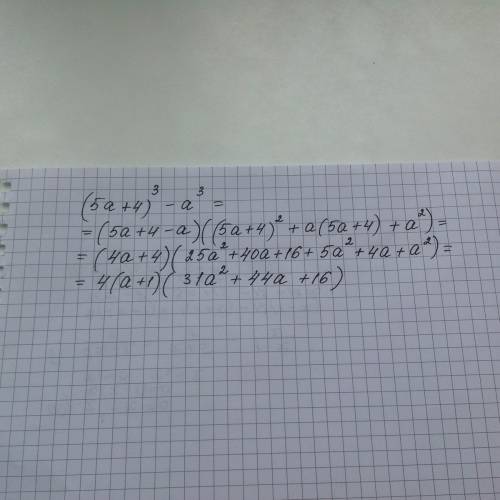 (5a+4)³ - a³ =
= (5a+4-a)((5a+4)² + a(5a+4) + a²) =
= (4a+4)(25a²+40a+16+5a²+4a+a²) =
= 4(a+1)(31a² + 44a + 16)